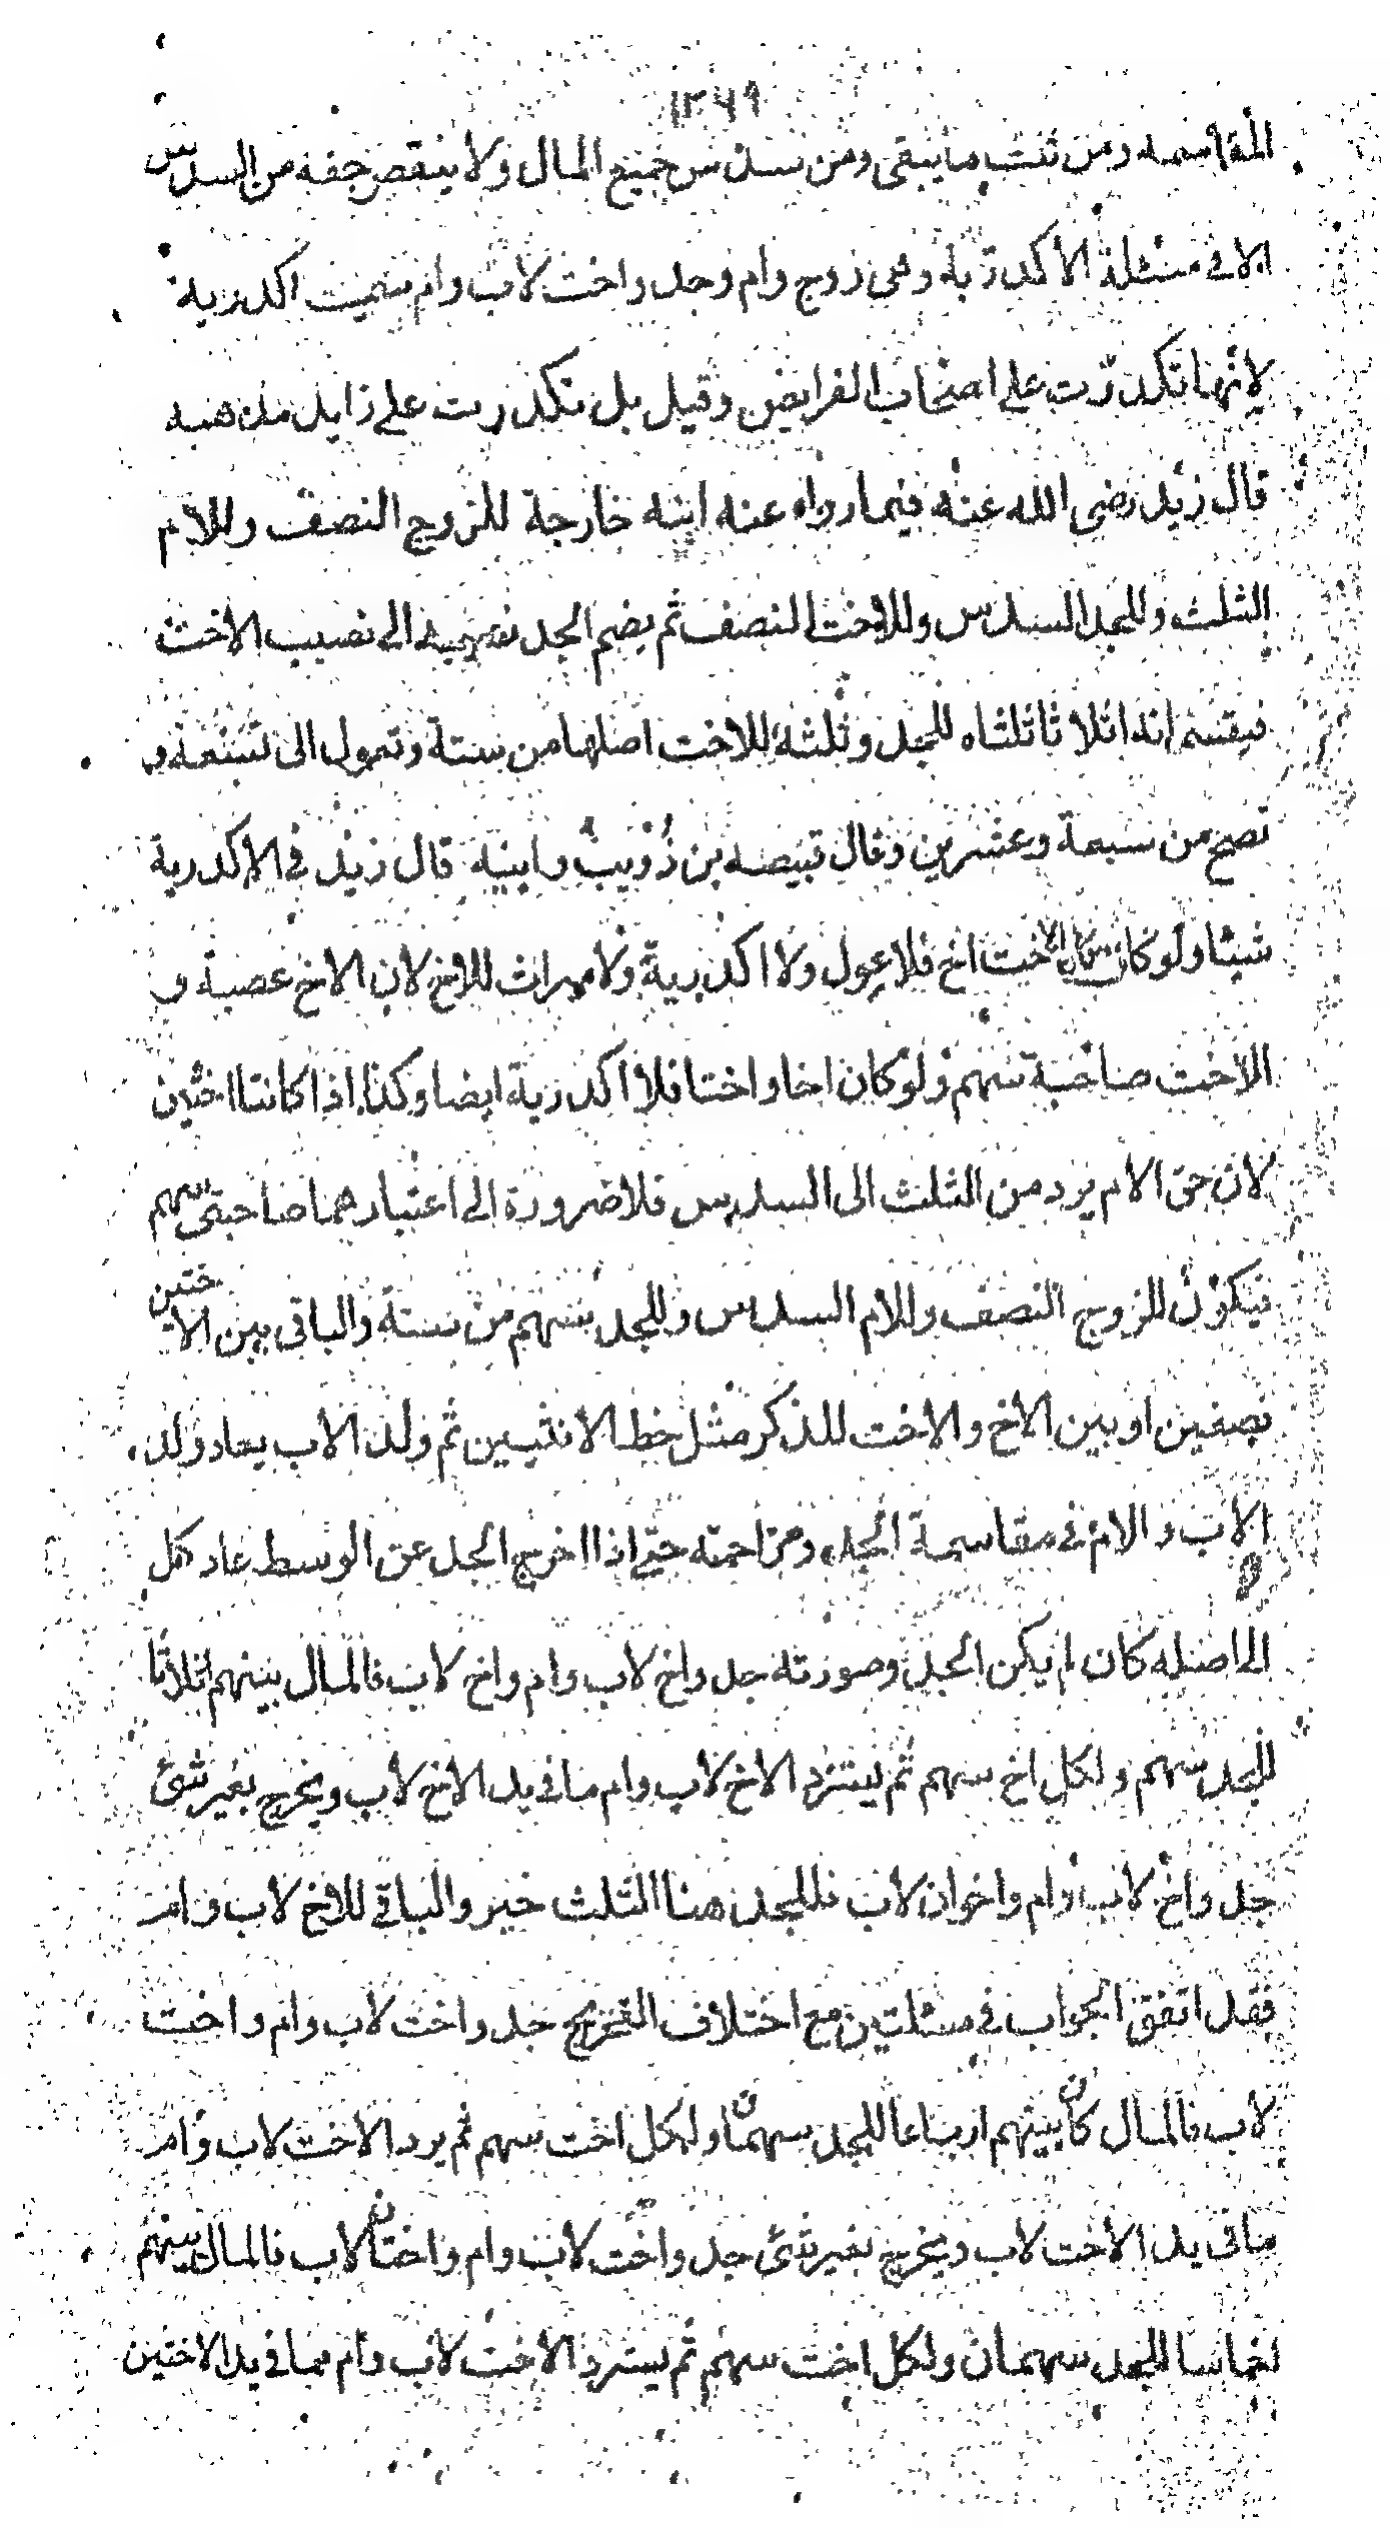 ١٢٦٩
المقاسمه ومن ثلث ما يبقى ومن سدس جميع المال ولا ينقص حقه من السدس
الا في مسئلة الاكدرية وهي زوج وام وجد واخت لاب وام سميت اكدرية
لانها تكدرت على اصحاب الفرايض وقيل بل تكدرت على زايد مذهبه
قال زيد رضى الله عنه فيما رواه عنه ابنه خارجة للزوج النصف وللام
الثلث وللجد السدس وللاخت النصف ثم يضم الجد نصيبه الى نصيب الاخت
فيقسمانه اثلاثا ثلثاه للجد وثلثه للاخت اصلها من ستة وتعول الى تسعة و
تصح من سبعة وعشرين وقال قبيصه بن ذُوَيبٌ وابنيه قال زيد في الاكدرية
شيئا ولو كان مكان الاخت اخ فلا عول ولا اكدرية ولا ميراث للاخ لان الاخ عصبة و
الاخت صاحبة سهم ولو كان اخا واختا فلا اكدرية ايضا وكذا اذا كانتا اختين
لان حق الام يرد من الثلث الى السدس فلا ضرورة الى اعتبارهما صاحبتى سهم
فيكون للزوج النصف وللام السدس وللجد سهم من ستة والباقى بين الاختين
نصفين او بين الاخ والاخت للذكر مثل حظ الانثيين ثم ولد الاب يعاد ولد
الاب والام في مقاسمة الجد ومزاحمته حتى اذا اخرج الجد عن الوسط عاد كل
الى اصله كان لم يكن الجد وصورته جد واخ لاب وام واخ لاب فالمال بينهم اثلاثا
للجد سهم ولكل اخ سهم ثم يسترد الاخ لاب وام ما في يد الاخ لاب ويخرج بغير شئ
جد واخ لاب وام واخوان لاب فللجد هنا الثلث خير والباقي للاخ لاب وام
فقد اتفق الجواب في مسئلتين مع اختلاف التخريج جد واخت لاب وام واخت
لاب فالمال كان بينهم ارباعا للجد سهمان ولكل اخت سهم ثم يرد الاخت لاب وام
ما في يد الاخت لاب ويخرج بغير شئ جد واخت لاب وام واختان لاب فالمال بينهم
اخماسا للجد سهمان ولكل اخت سهم ثم يسترد الاخت لاب وام مما في يد الاختين